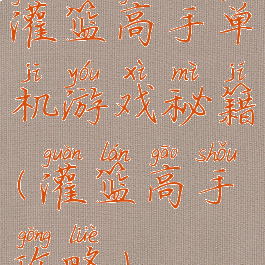 灌篮高手单
jī yóu xì mì jí
机游戏秘籍
guàn lán gāo shǒu
(灌篮高手
gōng lüè
攻略)